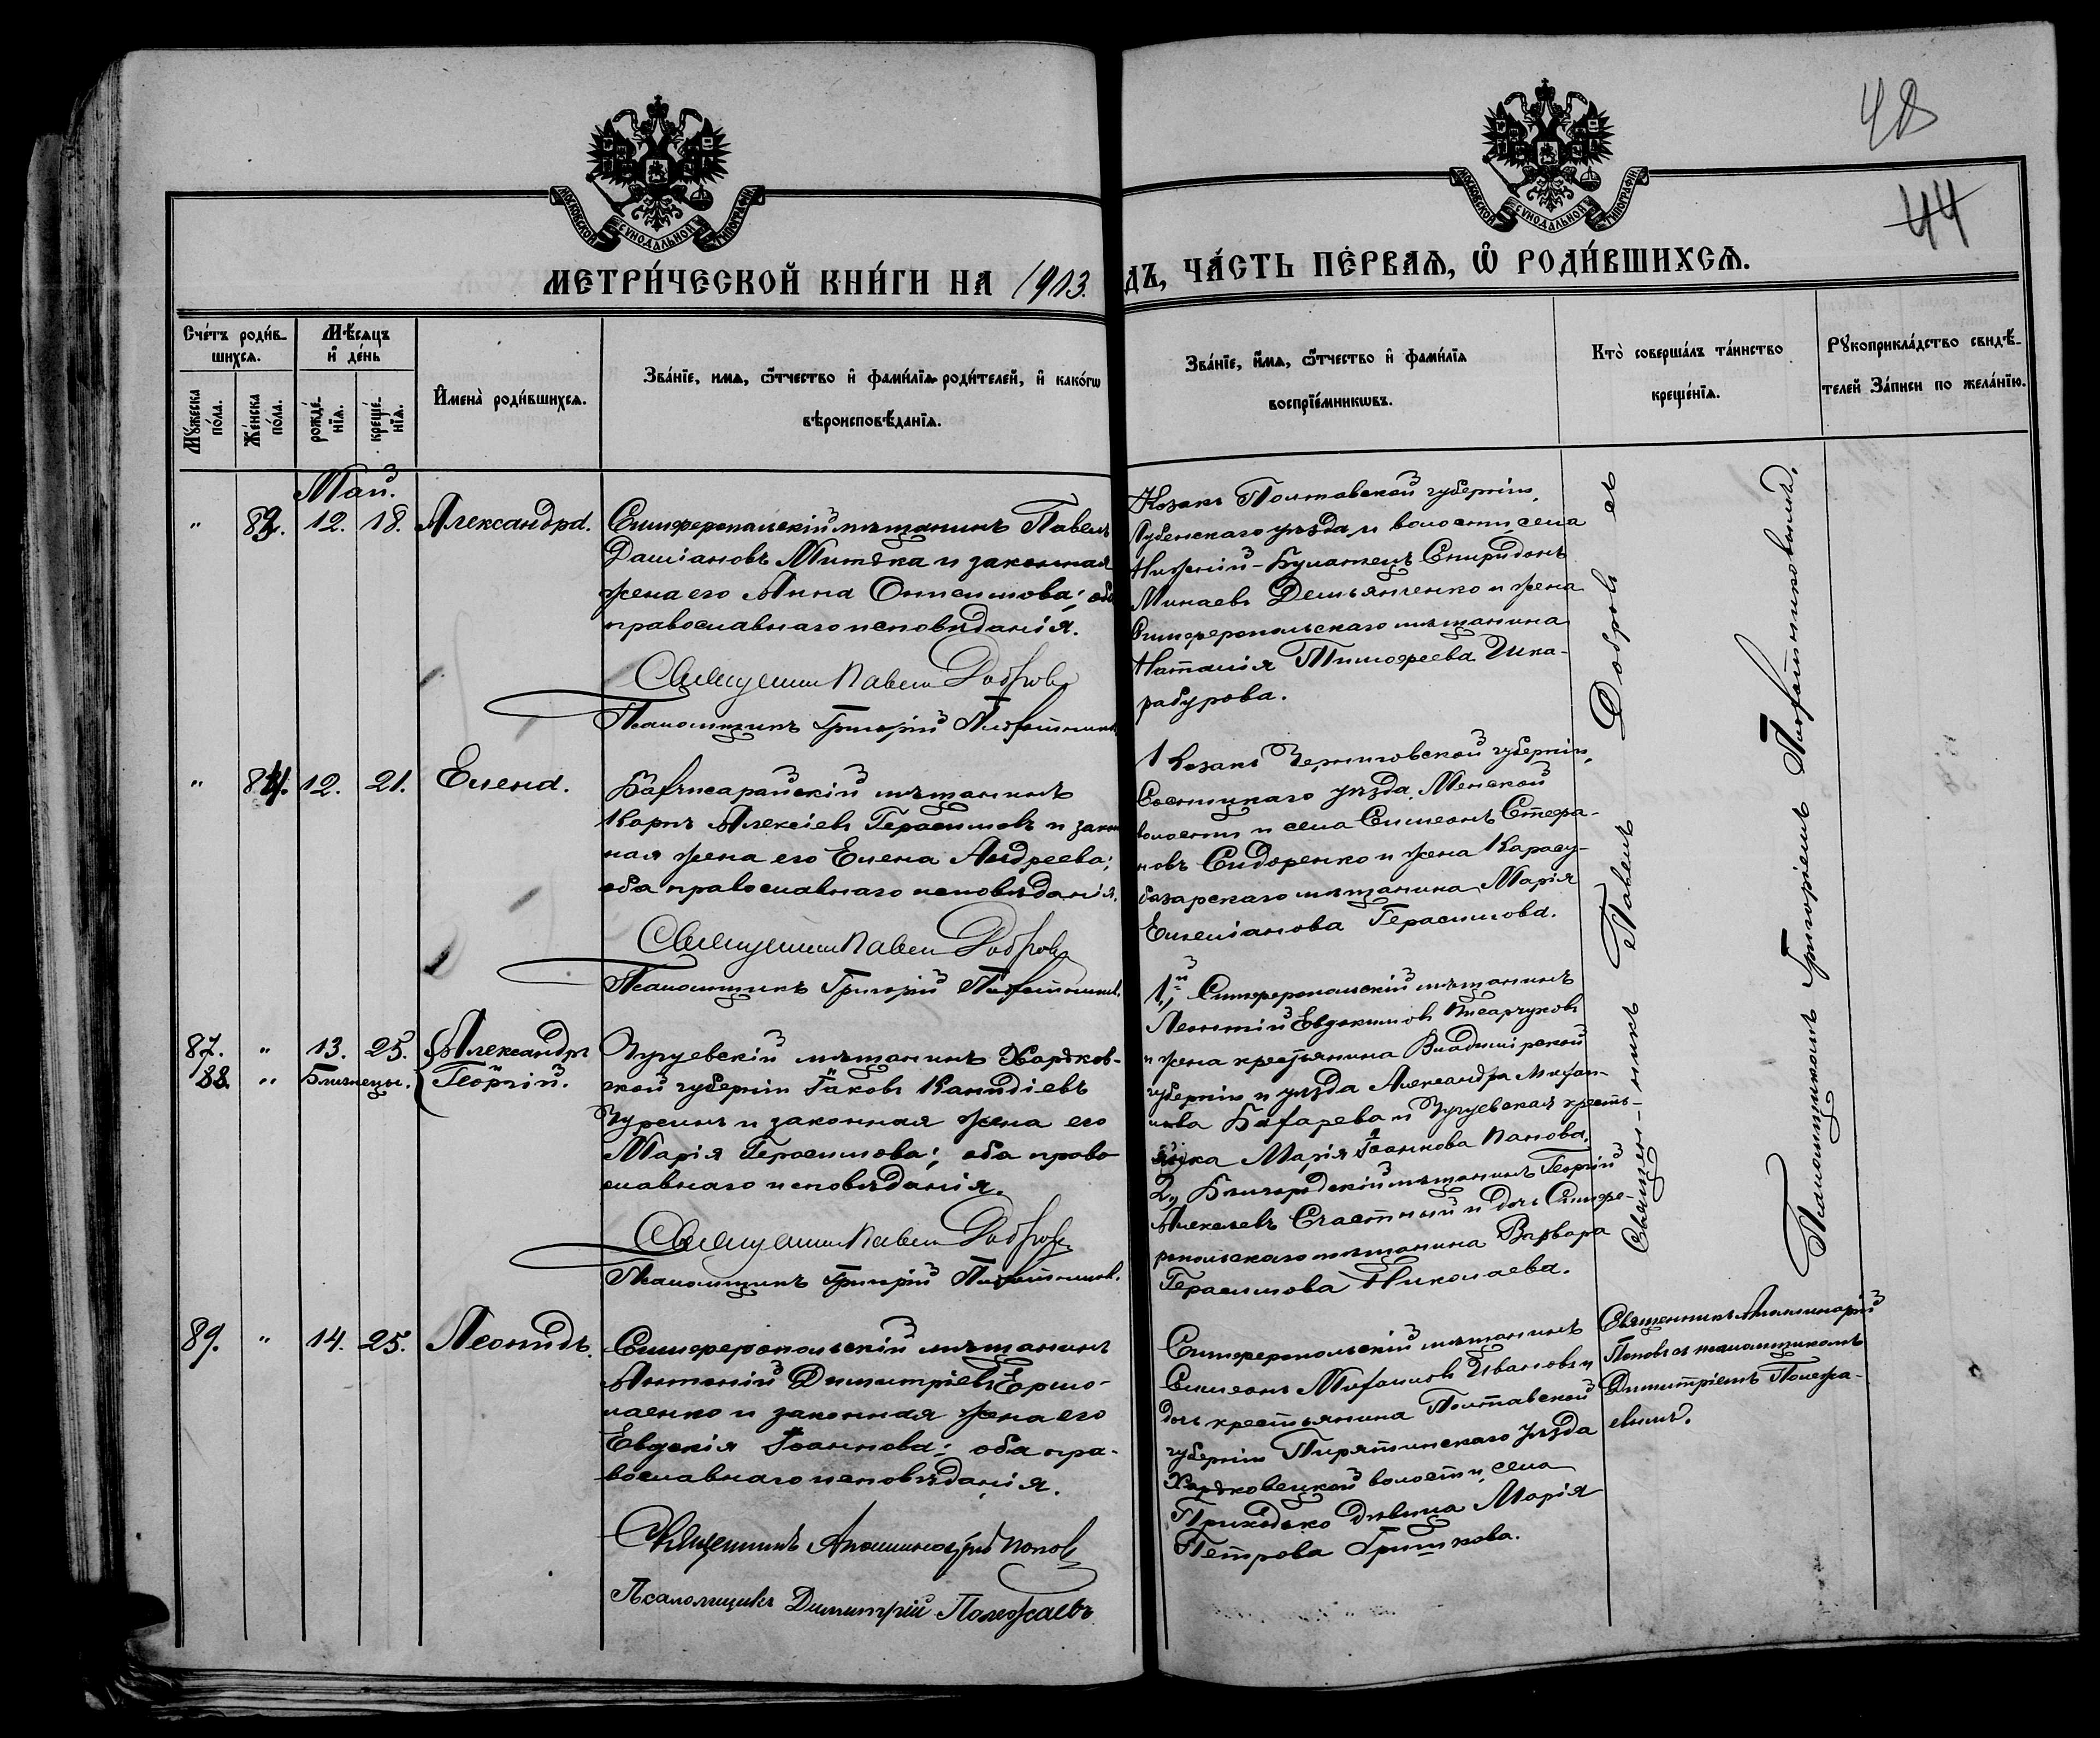 48
44
МОСКОВСКОЙ СѴНОДАЛЬНОЙ ТИПОГРАФІИ
МОСКОВСКОЙ СѴНОДАЛЬНОЙ ТИПОГРАФІИ
МЕТРИ́ЧЕСКОЙ КНИ́ГИ НА 1903.
ДЪ, ЧА́СТЬ ПЕ́РВАѦ, Ѡ҆ РОДИ́ВШИХСѦ.
Сче́тъ роди́в-
шихсѧ.
Мѣ́сѧцъ
и҆ де́нь
Мꙋ́жеска по́ла.
Же́нска по́ла.
рожде́-
нїѧ.
креще́-
нїѧ.
И҆мена̀ роди́вшихсѧ.
Зва́нїе, имѧ, ѻ҆́тчество и҆ фами́лїѧ роди́телей, и҆ како́гѡ
вѣроисповѣ́данїѧ.
Зва́нїе, и҆́мѧ, ѻ҆́тчество и҆ фами́лїѧ
воспрїе́мникѡвъ.
Кто̀ соверша́лъ та́инство
креще́нїѧ.
Рꙋкоприкла́дство свидѣ́-
телей за́писи по жела́нїю.
Май.
" 83. 12. 18. Александра.
Симферопольскій мѣщанинъ Павелъ
Даміановъ Митька и законная
жена его Анна Онисимова; оба
православнаго исповѣданія.
Священникъ Павелъ Добровъ
Псаломщикъ Григорій
Козакъ Полтавской губерніи,
Лубенскаго уѣзда и волости, села
Нижній-Булатецъ Спиридонъ
Минаевъ Демьянченко и жена
Симферопольскаго мѣщанина
Наталія Тимофеева Шка-
рабурова.
" 84. 12. 21. Елена.
Бахчисарайскій мѣщанинъ
Карпъ Алексіевъ Герасимовъ и закон
ная жена его Елена Андреева;
оба православнаго исповѣданія.
Священникъ Павелъ Добровъ
Псаломщикъ Григорій
Козакъ Черниговской губерніи,
Сосницкаго уѣзда, Менской
волости и села Симеонъ Стефа-
новъ Сидоренко и жена Карасу-
базарскаго мѣщанина Марія
Емеліанова Герасимова.
87. " 13. 25. Александръ
88. " Близнецы. Георгій.
Чугуевскій мѣщанинъ Харьков-
ской губерніи Іаковъ Каидіевъ
Чуринъ и законная жена его
Марія Герасимова; оба право-
славнаго исповѣданія.
Священникъ Павелъ Добровъ
Псаломщикъ Григорій
1, Симферопольскій мѣщанинъ
Леонтій Евдокимовъ Писарчуковъ
и жена крестьянина Владимірской
губерніи и уѣзда Александра Михаи-
лова Бахарева и Чугуевская кресть-
янка Марія Іоаннова Панова.
2, Бѣлгородскій мѣщанинъ Георгій
Алексѣевъ Счастный и дочь Симфе-
ропольскаго мѣщанина Варвара
Герасимова Николаева.
Священникъ Павелъ Добровъ съ
Псаломщикомъ Григоріемъ
89. " 14. 25. Леонидъ.
Симферопольскій мѣщанинъ
Антоній Димитріевъ Ермо-
ленко и законная жена его
Евдокія Іоаннова; оба пра-
вославнаго исповѣданія.
Священникъ Аполлинарій Поповъ
Псаломщикъ Димитрій Полежаевъ
Симферопольскій мѣщанинъ
Симеонъ Михаиловъ Ивановъ и
дочь крестьянина Полтавской
губерніи Пирятинскаго уѣзда
Харьковецкой волости, села
Приходько дѣвица Марія
Петрова Гришкова.
Священникъ Аполлинарій
Поповъ съ псаломщикомъ
Димитріемъ Полежа-
евымъ.